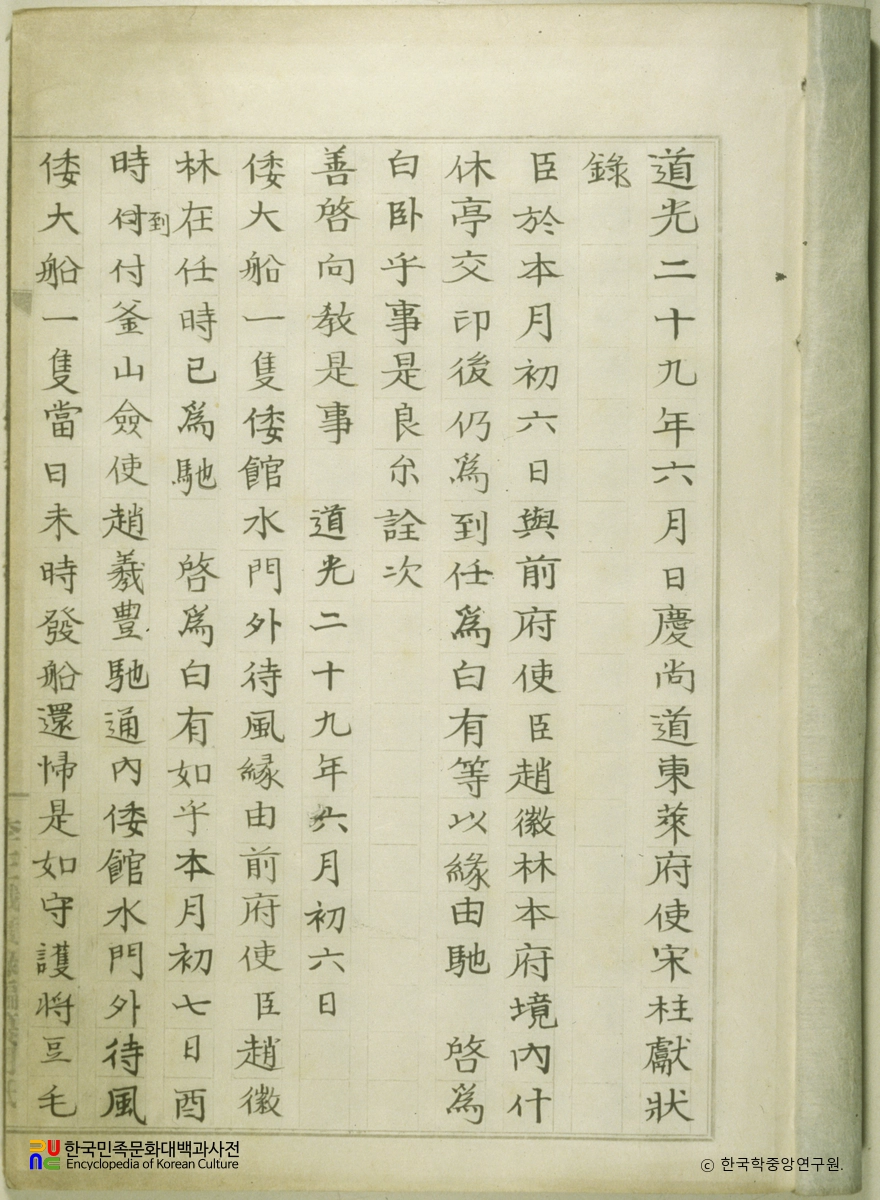 道光二十九年六月日慶尚道東萊府使宋柱獻狀
錄
臣於本月初六日與前府使臣趙徽林本府境內什
休亭交印後仍爲到任爲白有等以緣由馳 啓爲
白卧乎事是良尒詮次
善啓向敎是事 道光二十九年六月初六日
倭大船一隻倭館水門外待風緣由前府使臣趙徽
林在任時已爲馳 啓爲白有如乎本月初七日酉
時到付釜山僉使趙羲豊馳通內倭館水門外待風
倭大船一隻當日未時發船還帰是如守護將豆毛
한국민족문화대백과사전
Encyclopedia of Korean Culture
© 한국학중앙연구원.